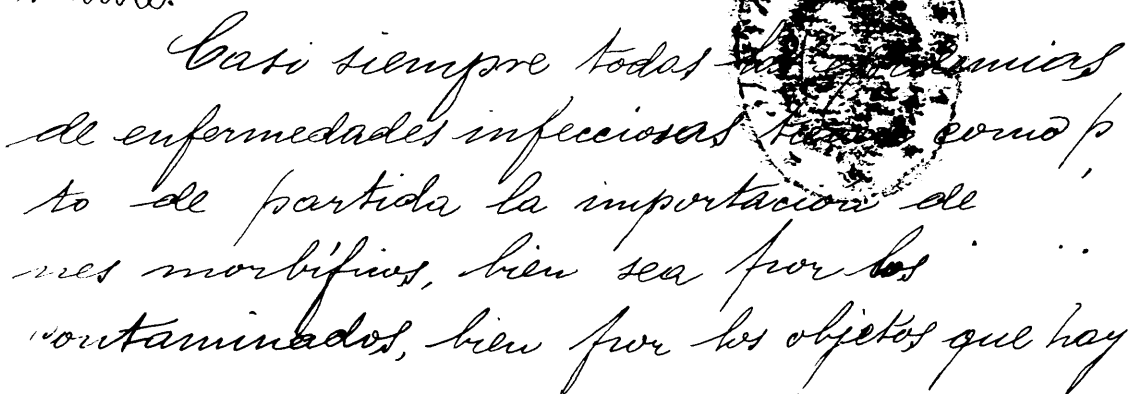 Casi siempre todas las epidemias
de enfermedades infecciosas tienen como p
to de partida la importación de
nes morbíficos, bien sea por los
contaminados, bien por los objetos que hay